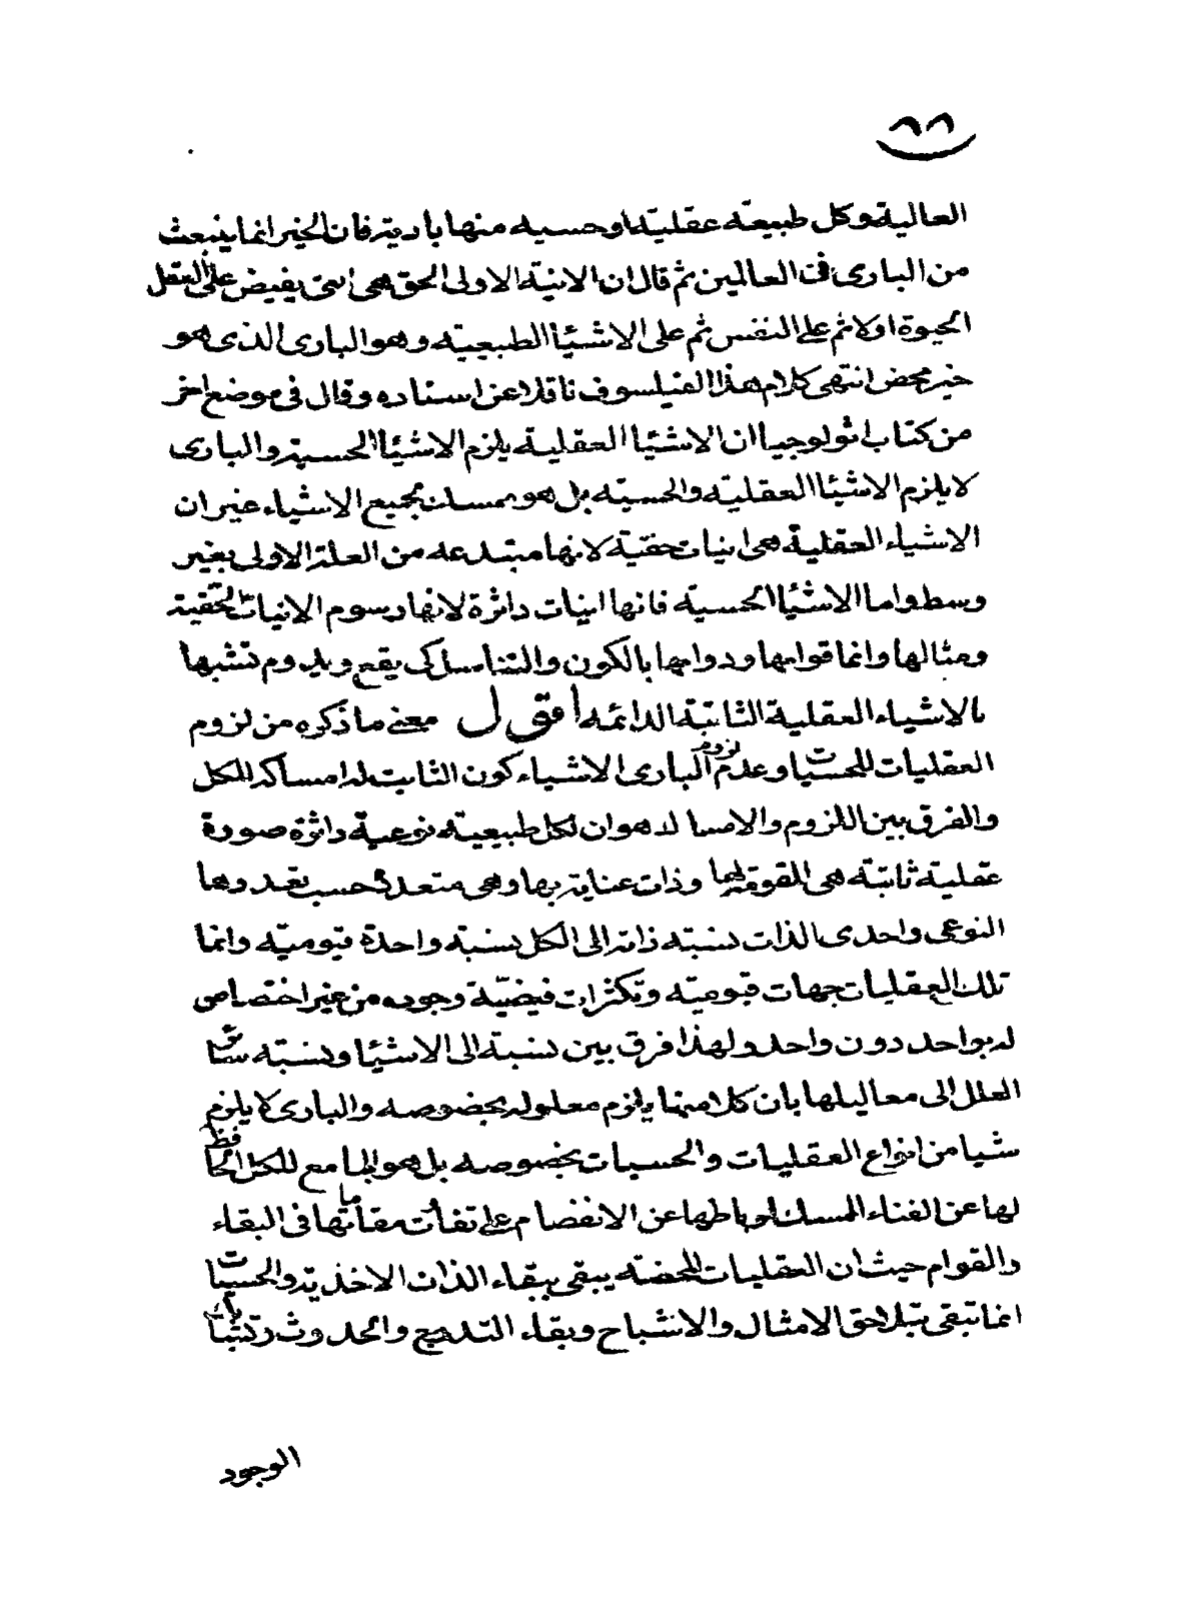 ٦٦
العالية وكل طبيعته عقليته او حسيه منها باديته فان الخير انما ينبعث
من البارى فى العالمين ثم قال ان الانية الاولى الحق هى التى يفيض على العقل
الحيوة اولا ثم على النفس ثم على الاشيئا الطبيعيته وهو البارى الذى هو
خير محض انتهى كلام هذا الفيلسوف ناقلا عن استاده وقال فى موضع اخر
من كتاب اثولوجيا ان الاشيئا العقلية يلزم الاشيئا الحسية والبارى
لا يلزم الاشيئا العقليته والحسيته بل هو ممسك لجميع الاشياء غير ان
الاشياء العقلية هى انيات حقية لانها مبتدعه من العلة الاولى بغير
وسط واما الاشيئا الحسية فانها انيات داثرة لانها رسوم الانيات الحقيقية
ومثالها وانما قوامها ودوامها بالكون والتناسل كى يقع ويدوم تشبها
بالاشياء العقلية الثابتة الدائمه اقول معنى ما ذكره من لزوم
العقليات للحسيات وعدم لزوم البارى الاشياء كون الثابت له امساك الكل
والفرق بين اللزوم والامساك هو ان لكل طبيعيته نوعية داثرة صورة
عقلية ثابتة هى المقومة لها وذات عناية بها وهى متعددة حسب تعددها
النوعى واحدى الذات نسبته ذاته الى الكل نسبته واحدة قيوميته وانما
تلك العقليات جهات قيوميته وتكثرات فيضية وجوده من غير اختصاص
له بواحد دون واحد ولهذا فرق بين نسبة الى الاشيئا ونسبته سائر
العلل الى معاليلها بان كلا منها يلزم معلوله بخصوصه والبارى لا يلزم
شيا من انواع العقليات والحسيات بخصوصه بل هو الجامع للكل الحافظ
لها عن الفناء المسك لرباطها عن الانفصام على تفاوت مقاماتها فى البقاء
والقوام حيث ان العقليات المحضته يبقى ببقاء الذات الاخذيته والحسيات
انما تبقى بتلاحق الامثال والاشباح وبقاء التدريج والحدوث رتبتها
الوجود